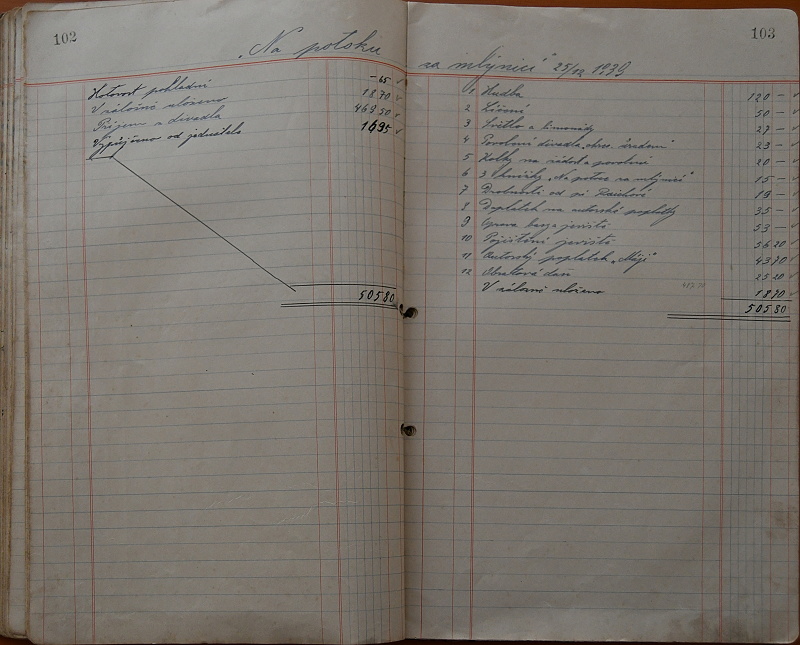 102
„Na potokce
Hotovost pokladní —65
V záložně uloženo 1870
Příjem z divadla 46950
Vypůjčeno od jednatele 1695
50580
103
za mlýnicí" 25/12 1939
1 Hudba 120 —
2 50 —
3 Světlo a limonády 27 —
4 Povolení divadla „okres. úřadem" 23 —
5 Kolky na žádost a povolení 20 —
6 3 knížky „Na za mlýnicí" 15 —
7 Drobnosti od sl. 19 —
8 Doplatek na autorské poplatky 35 —
9 Úprava jeviště 53 —
10 Pojištění jeviště 5620
11 Autorský poplatek „Máji" 4370
12 Obratová daň 2520
V záložně uloženo 1870
50580